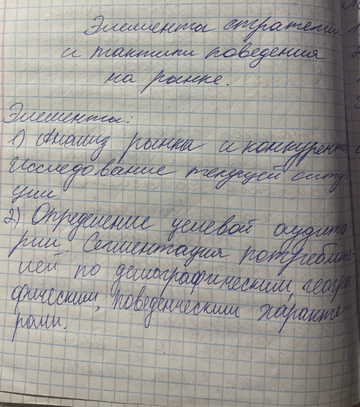 Элементы стратегии
и тактики поведения
на рынке.
Элементы:
1) Анализ рынка и конкурент
исследование текущей ситу
ции
2) Определение целевой аудита
рии. Сегментация потребите
лей по демографическим, геогра
фическим, поведенческим характе
рами.